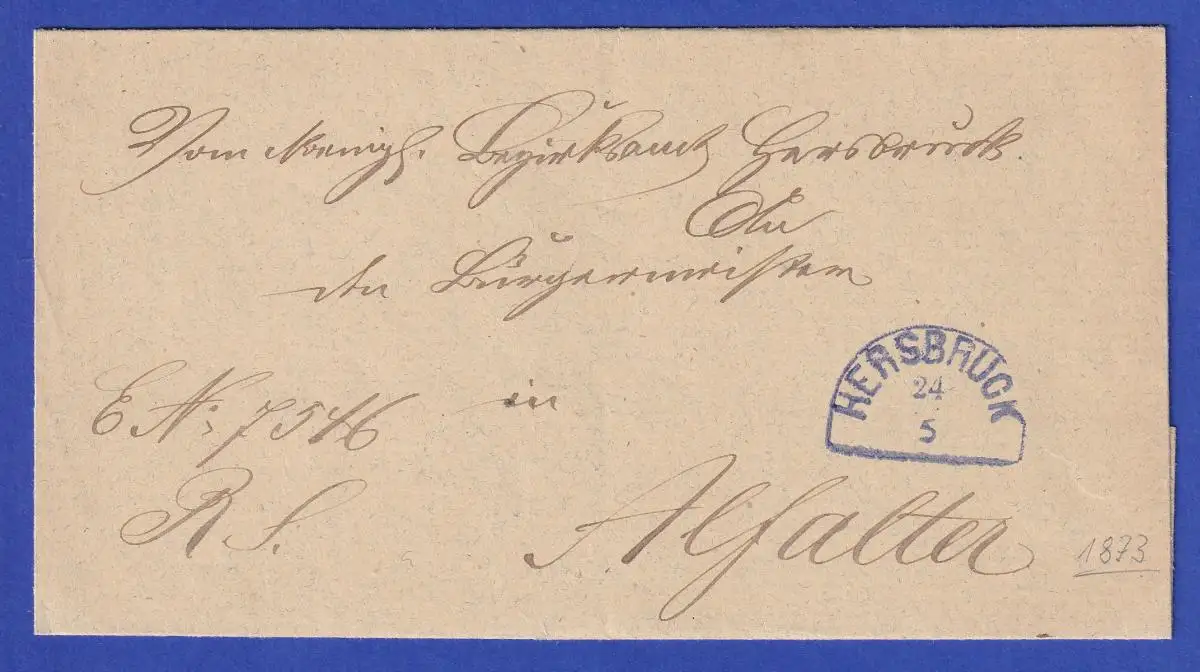 Vom koenigl. Bezirksamt Hersbruck.
An
den Bürgermeister
HERSBRUCK
24
5
E № 7546
in
R. S.
Alfalter
1873